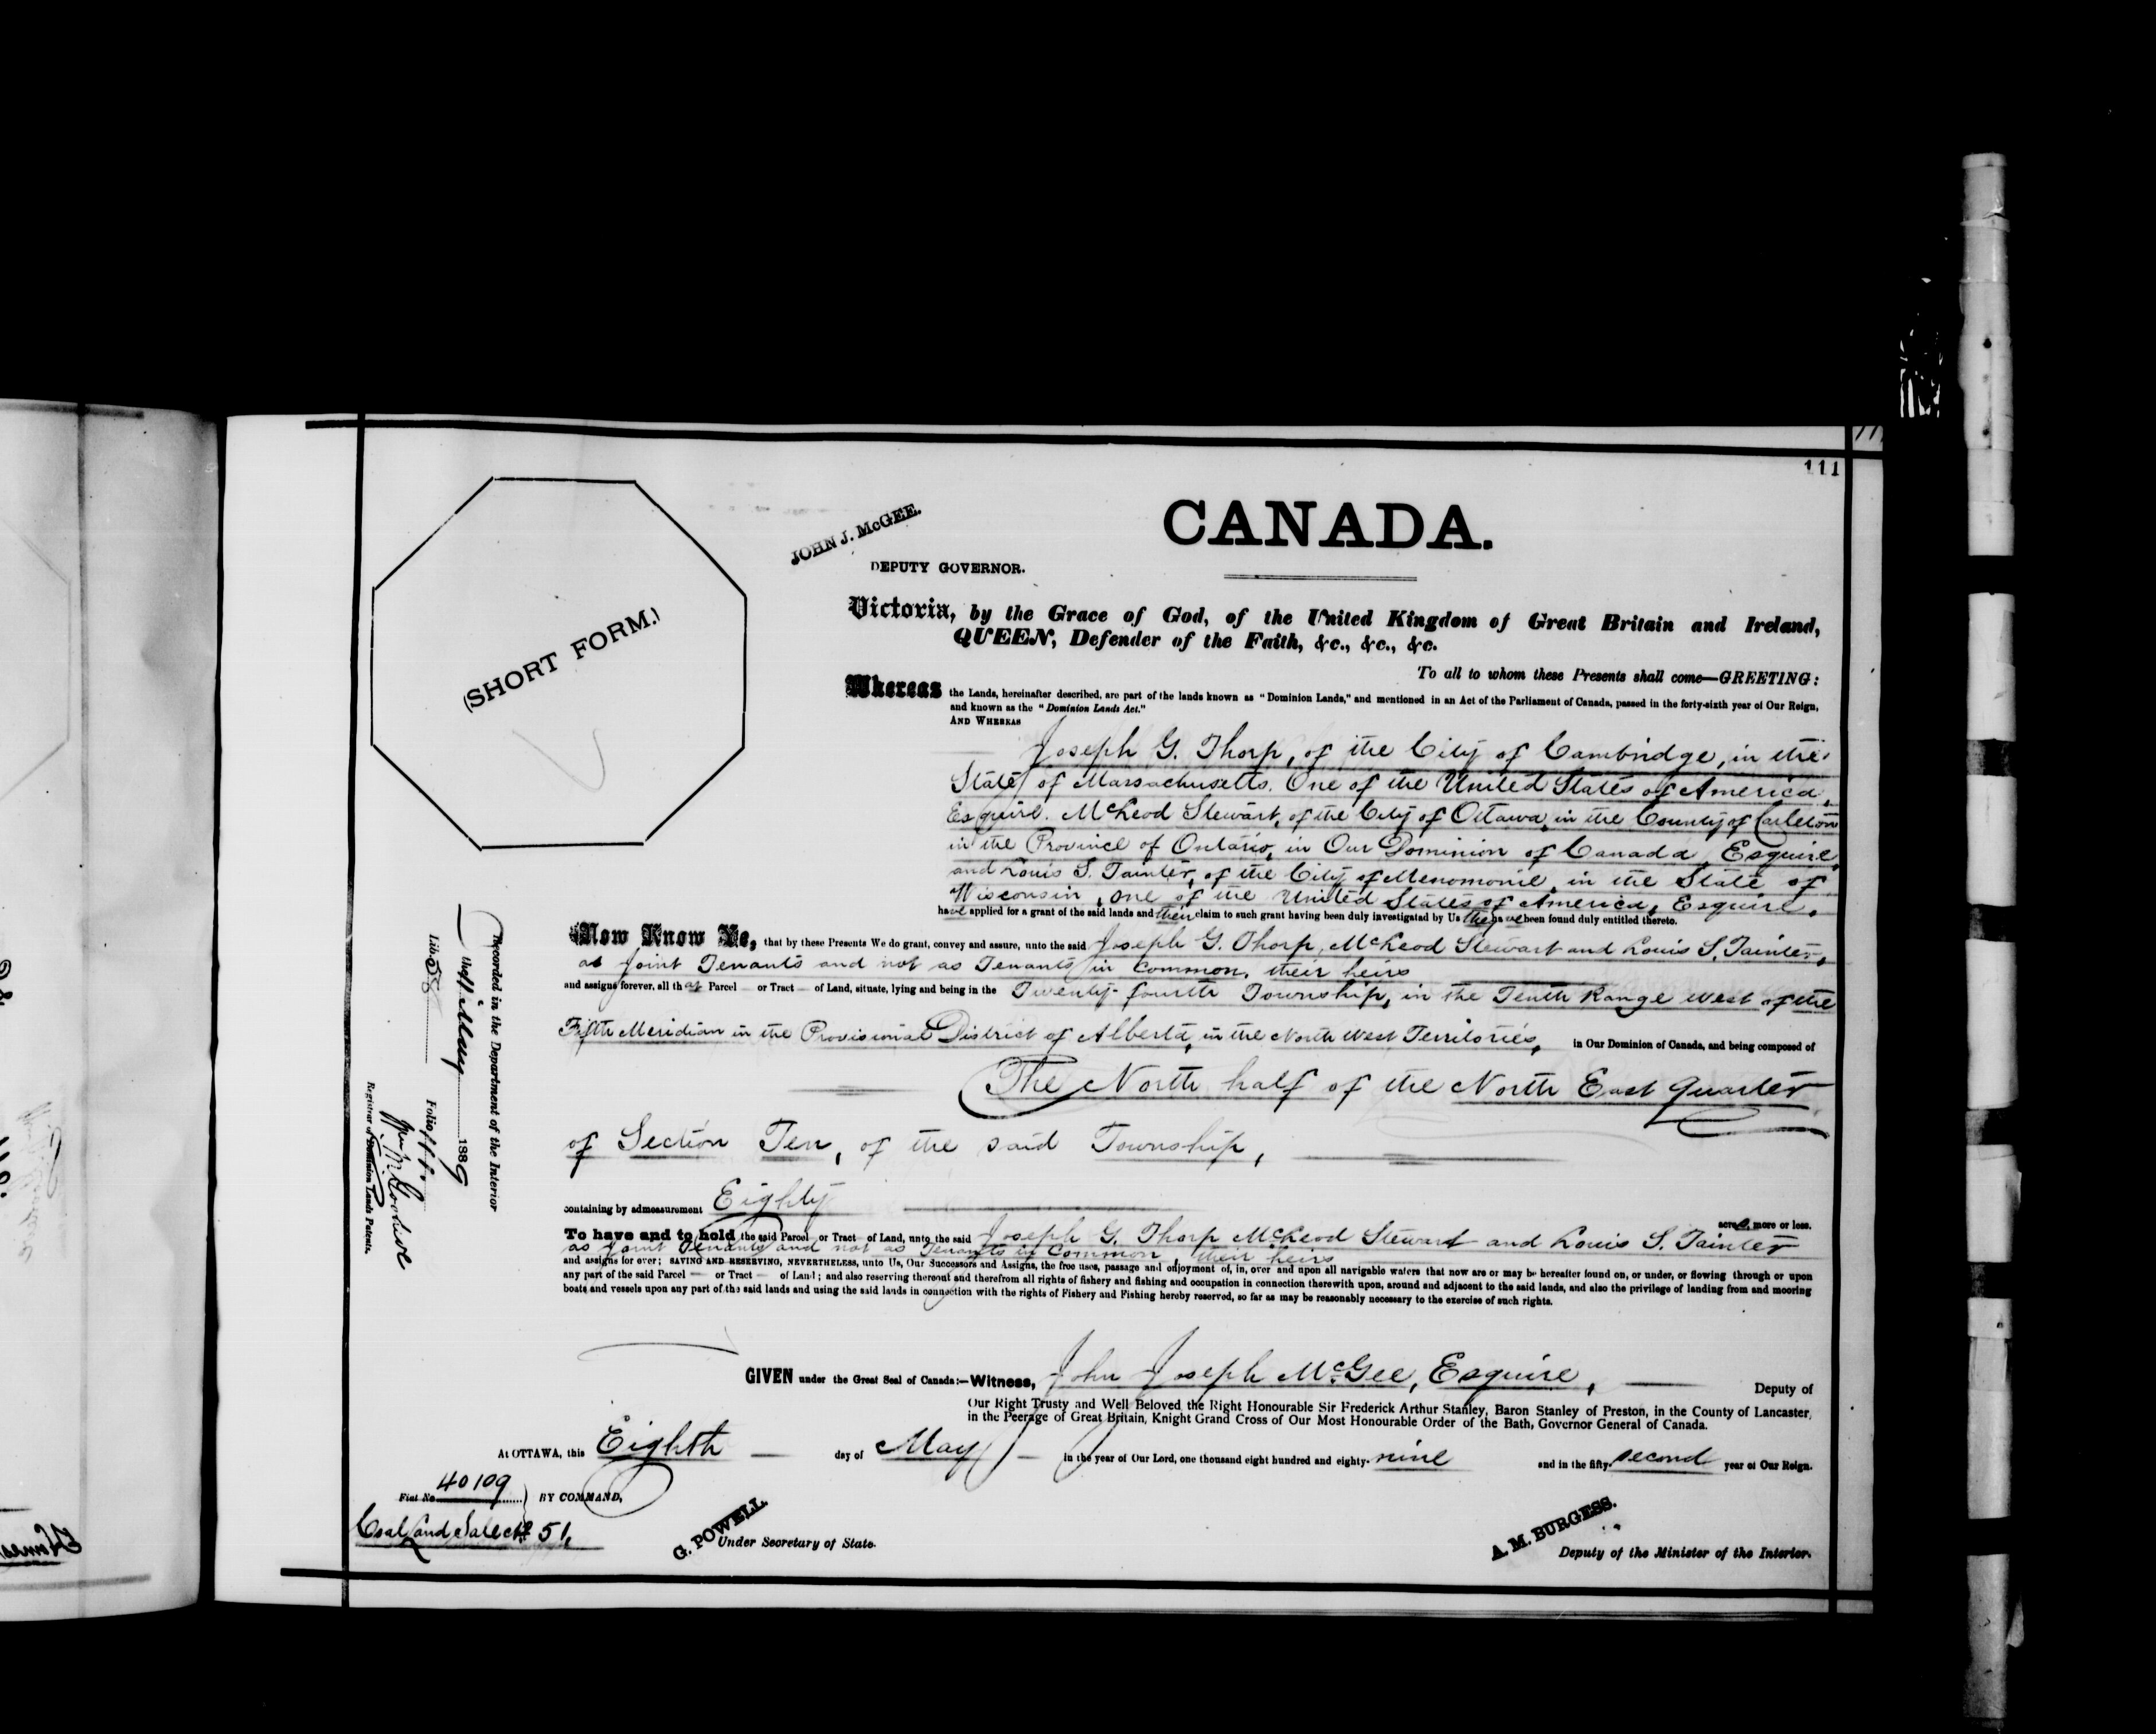 111
111
CANADA.
JOHN J. McGEE.
DEPUTY GOVERNOR.
(SHORT FORM.)
Victoria, by the Grace of God, of the United Kingdom of Great Britain and Ireland,
QUEEN, Defender of the Faith, &c., &c., &c.
To all to whom these Presents shall come—GREETING:
Whereas the Lands, hereinafter described, are part of the lands known as "Dominion Lands," and mentioned in an Act of the Parliament of Canada, passed in the forty-sixth year of Our Reign,
and known as the "Dominion Lands Act."
AND WHEREAS
Joseph G. Thorp, of the City of Cambridge, in the
State of Massachusetts. One of the United States of America,
Esquire. McLeod Stewart, of the City of Ottawa, in the County of Carleton
in the Province of Ontario, in Our Dominion of Canada, Esquire,
and Louis S. Tainter, of the City of Menomonie, in the State of
Wisconsin, one of the United States of America, Esquire,
have applied for a grant of the said lands and their claim to such grant having been duly investigated by Us they have been found duly entitled thereto.
Now Know Ye, that by these Presents We do grant, convey and assure, unto the said Joseph G. Thorp, McLeod Stewart and Louis S. Tainter,
as Joint Tenants and not as Tenants in Common, their heirs
and assigns forever, all that Parcel — or Tract — of Land, situate, lying and being in the Twenty-fourth Township, in the Tenth Range West of the
Fifth Meridian in the Provisional District of Alberta, in the North West Territories, in Our Dominion of Canada, and being composed of
The North half of the North East Quarter
of Section Ten, of the said Township,
containing by admeasurement Eighty
acres, more or less.
To have and to hold the said Parcel or Tract of Land, unto the said Joseph G. Thorp McLeod Stewart and Louis S. Tainter
as Joint Tenants and not as Tenants in Common, their heirs
and assigns for ever; SAVING AND RESERVING, NEVERTHELESS, unto Us, Our Successors and Assigns, the free uses, passage and enjoyment of, in, over and upon all navigable waters that now are or may be hereafter found on, or under, or flowing through or upon
any part of the said Parcel — or Tract — of Land; and also reserving thereout and therefrom all rights of fishery and fishing and occupation in connection therewith upon, around and adjacent to the said lands, and also the privilege of landing from and mooring
boats and vessels upon any part of the said lands and using the said lands in connection with the rights of Fishery and Fishing hereby reserved, so far as may be reasonably necessary to the exercise of such rights.
GIVEN under the Great Seal of Canada:—Witness, John Joseph McGee, Esquire, Deputy of
Our Right Trusty and Well Beloved the Right Honourable Sir Frederick Arthur Stanley, Baron Stanley of Preston, in the County of Lancaster,
in the Peerage of Great Britain, Knight Grand Cross of Our Most Honourable Order of the Bath, Governor General of Canada.
At OTTAWA, this Eighth day of May in the year of Our Lord, one thousand eight hundred and eighty-nine and in the fifty-second year of Our Reign.
Fiat No. 40109 BY COMMAND,
Coal Land Sale No 51,
G. POWELL
Under Secretary of State.
A. M. BURGESS.
Deputy of the Minister of the Interior.
Recorded in the Department of the Interior
May 1889
Lib. 58 Folio 111
Registrar of Dominion Lands Patents.